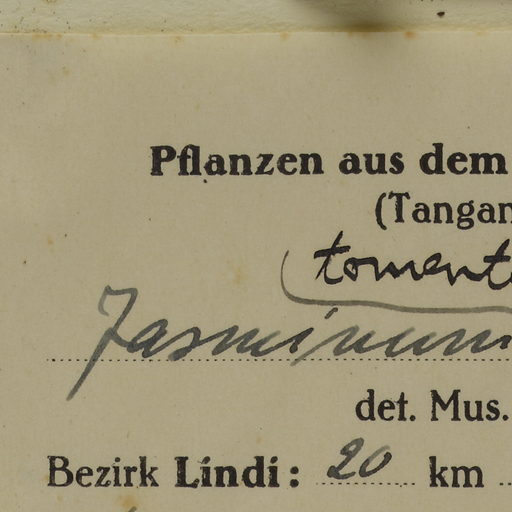 Pflanzen aus dem
(Tangan
toment
Jasminum
det. Mus.
Bezirk Lindi: 20 km